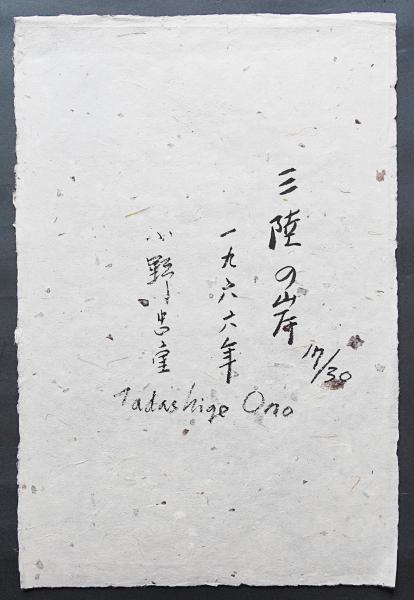 三陸の岸
17/30
一九六六年
小野忠重
Tadashige Ono